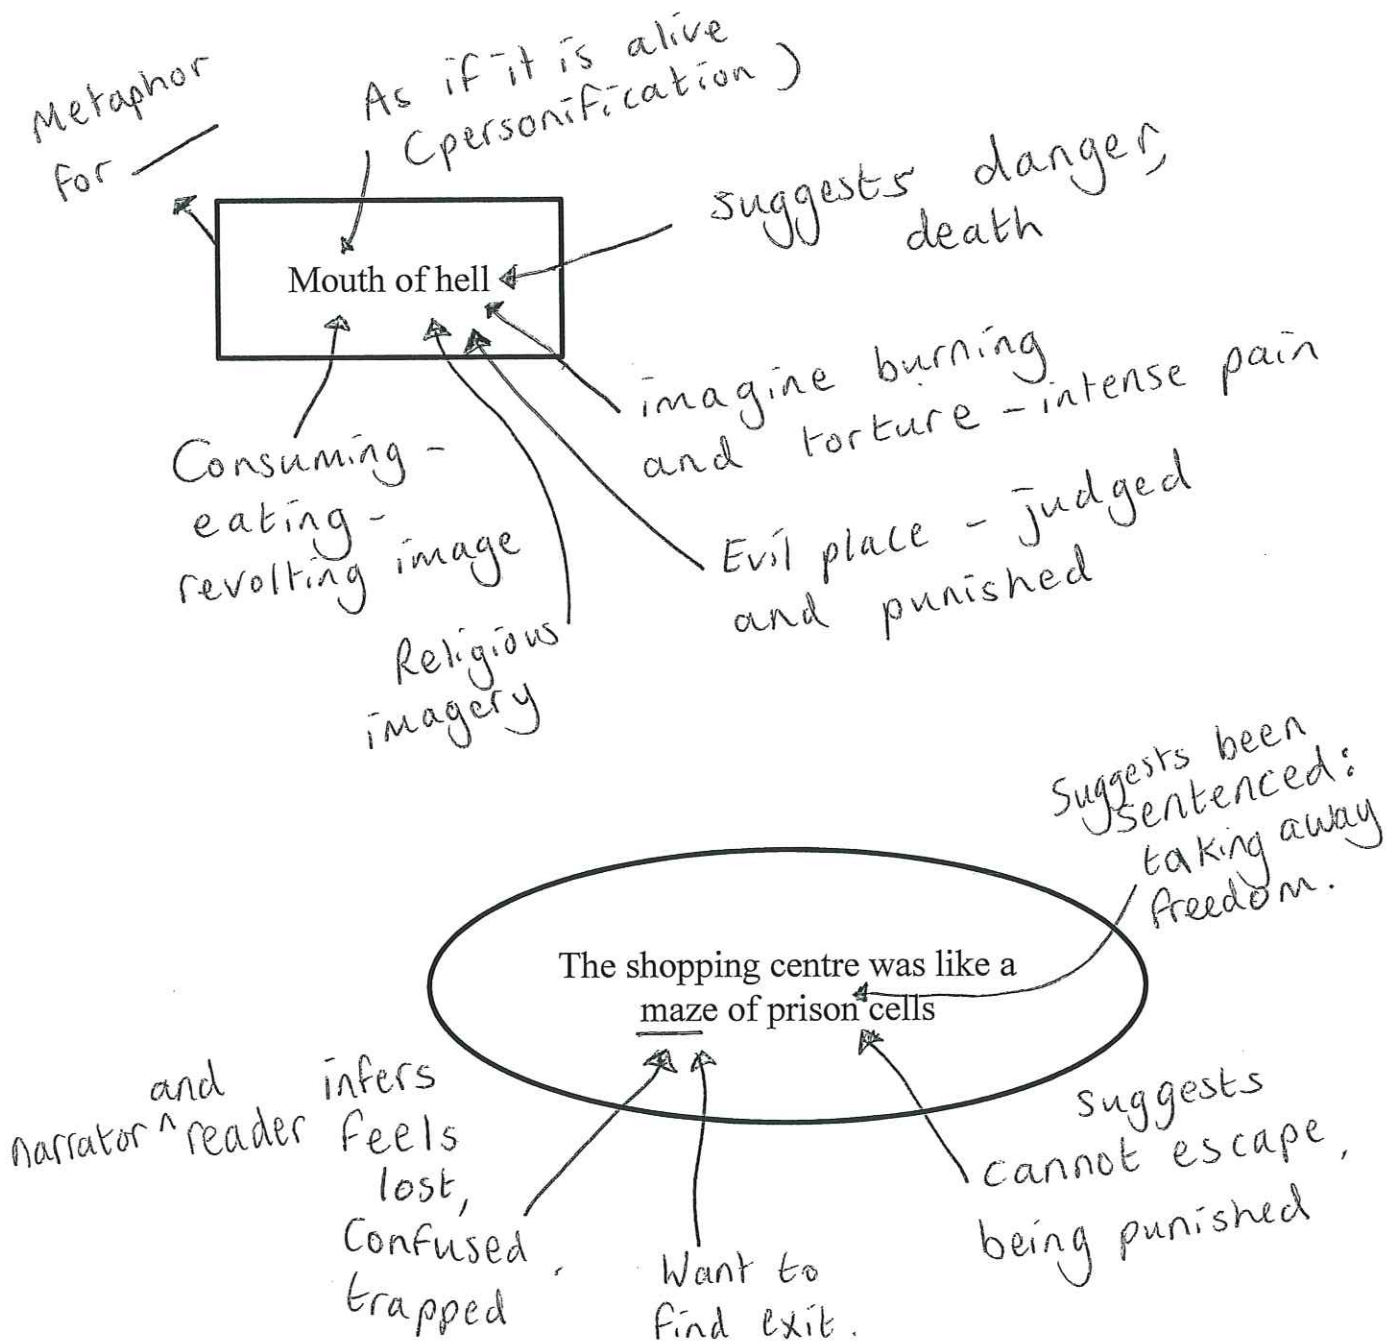 Metaphor
for
As if it is alive
(personification)
suggests danger,
death
Mouth of hell
imagine burning
and torture - intense pain
Consuming -
eating -
revolting image
Evil place - judged
and punished
Religious
imagery
Suggests been
sentenced:
taking away
freedom.
The shopping centre was like a
maze of prison cells
and infers
narrator ^ reader feels
lost,
Confused,
trapped
Want to
find exit.
suggests
cannot escape,
being punished